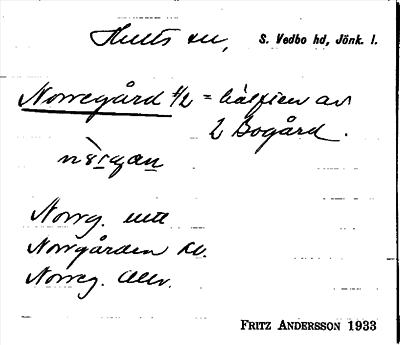 Hults sn, S. Vedbo hd, Jönk. l.
Norregård 1/2 = hälften av
2 Bogård.
Norrg. utt
Norrgården Kv.
Norreg. Allv.
FRITZ ANDERSSON 1933